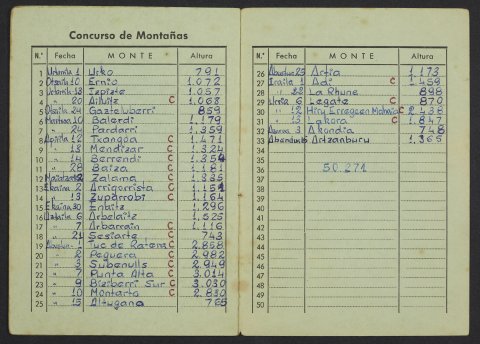 Concurso de Montañas
N.º Fecha MONTE Altura
1 Urtarrila 1 Urko 791
2 Otsaila 10 Ernio 1.072
3 13 Izpizte 1.057
4 „ 20 Aitluitz C 1.068
5 Otsaila 24 Gazteluberri 859
6 10 Balerdi 1.179
7 „ 24 Pardarri 1.359
8 Apirila 12 Txangoa C 1.471
9 „ 13 Mendizar C 1.324
10 „ 14 Berrendi C 1.354
11 „ 28 Baiza C 1.181
12 Zalama C 1.335
13 Ekaina 2 Arrigorrista C 1.151
14 „ 13 Zuparrobi C 1.164
15 Ekaina 30 Enbitz 1.296
16 Uztaila 6 Arbelaitz 1.525
17 „ 7 Arbarrain C 1.116
18 „ 21 Sesiarte C 743
19 1 Tuc de Ratera C 2.858
20 „ 2 Peguera C 2.982
21 „ 3 Subenulls C 2.949
22 „ 7 Punta Alta C 3.014
23 „ 9 Biziberri Sur C 3.030
24 „ 10 Montarto C 2.830
25 „ 15 Altugana 765
N.º Fecha MONTE Altura
26 25 Artia 1.173
27 Iraila 1 Adi C 1.459
28 „ 22 La Rhune 898
29 Urria 6 Legate C 870
30 „ 12 Hiru Erregeen C 2.438
31 „ 15 Lakora C 1.847
32 3 Akondia 748
33 Artzanburu 1.365
34
35
36 50.271
37
38
39
40
41
42
43
44
45
46
47
48
49
50